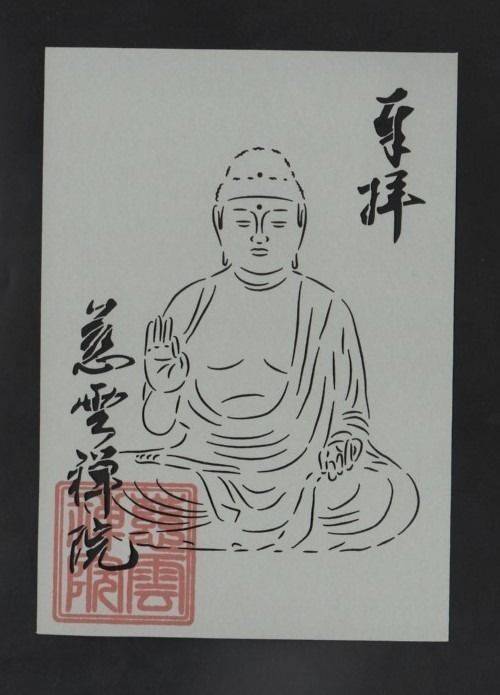 奉拝
慈雲禅院
慈雲
禅院